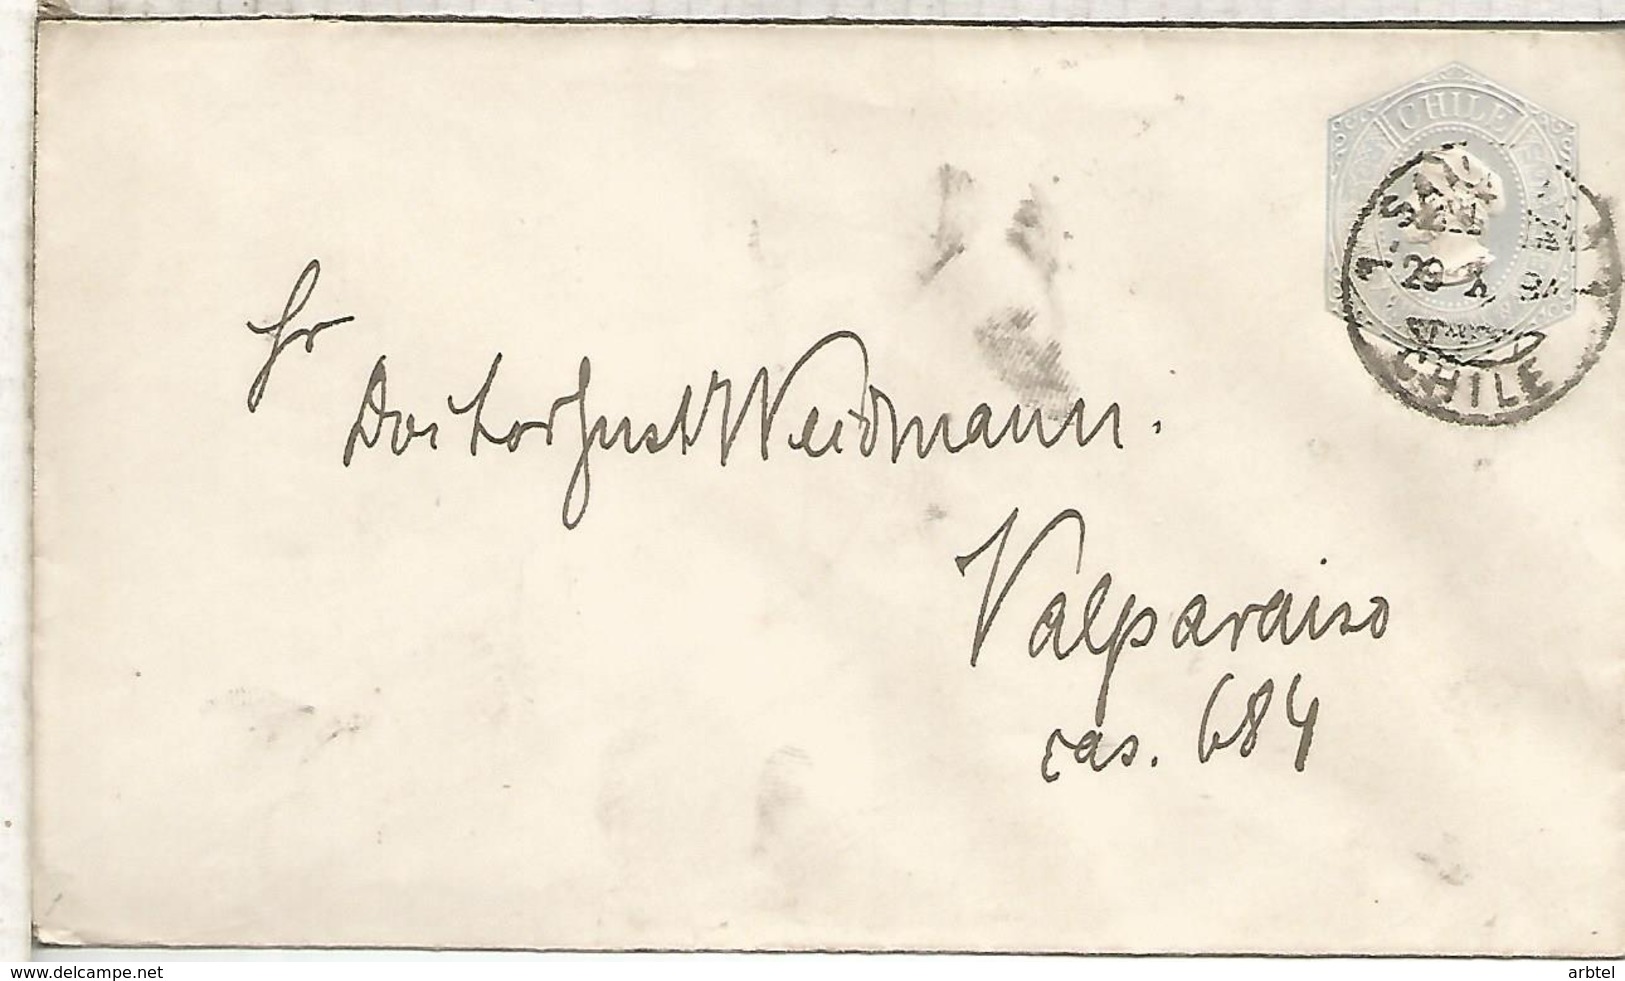 CHILE
29 X 94
CHILE
Hr
Doctor Just Weidmann.
Valparaiso
cas. 684
www.delcampe.net
arbtel